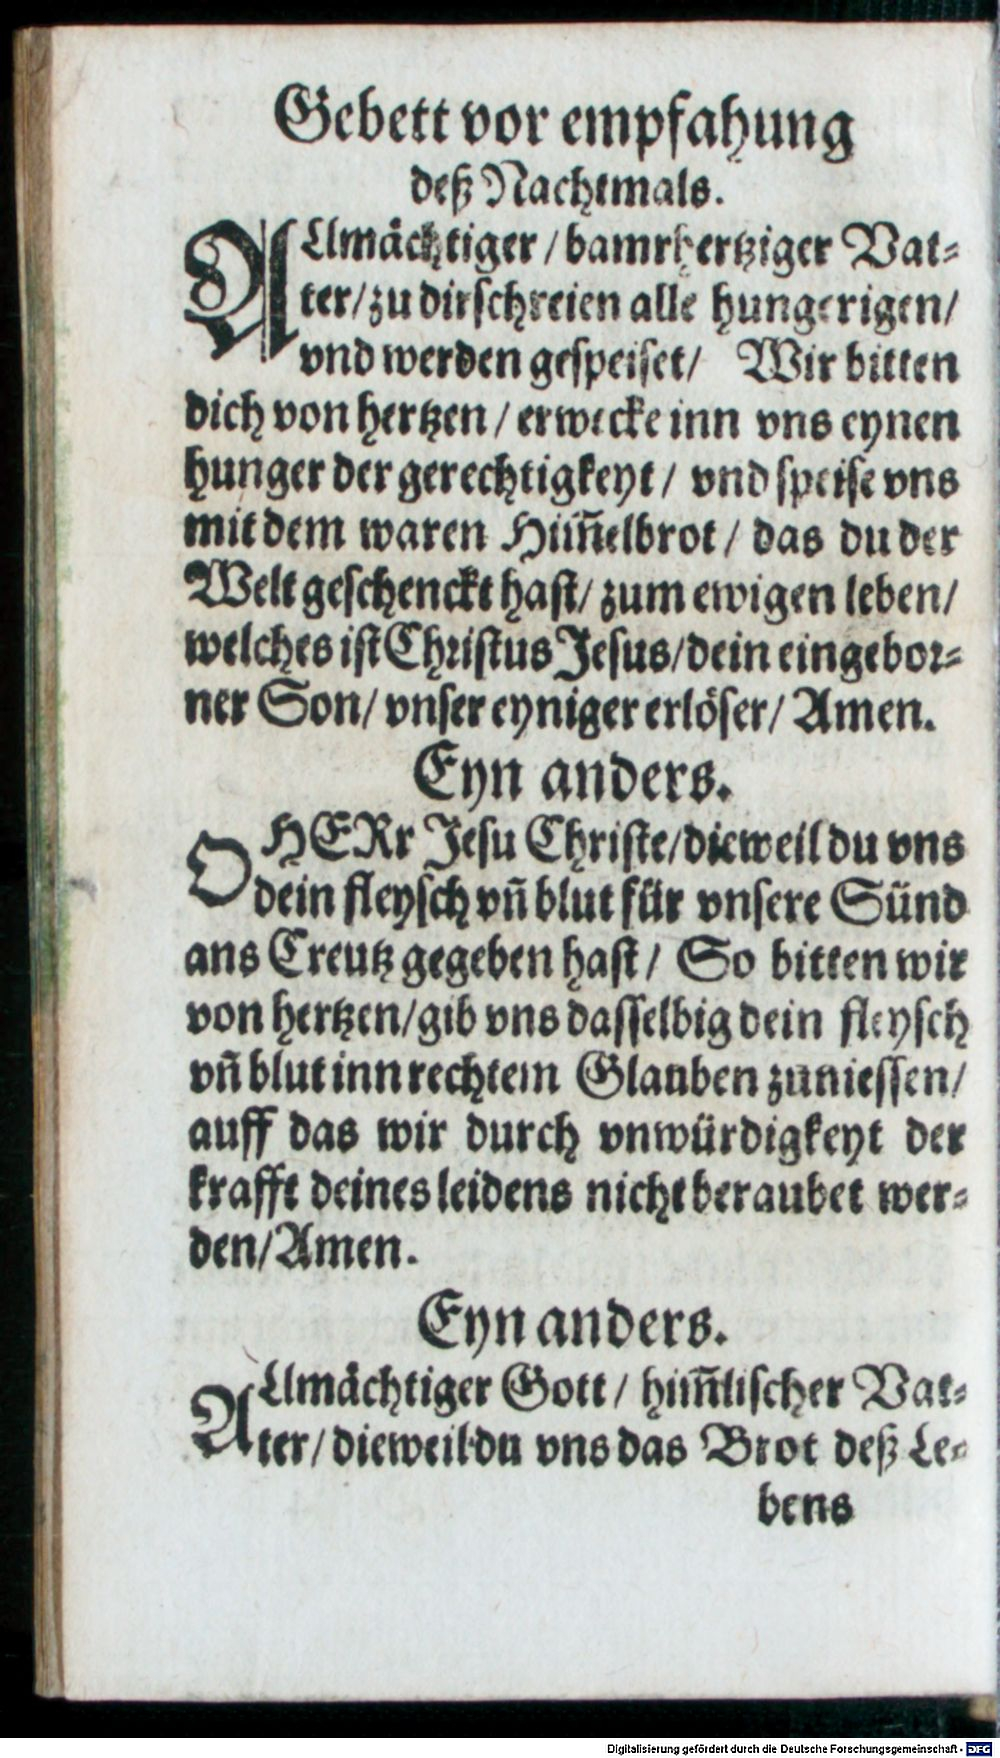 Gebett vor empfahung
deß Nachtmals.
ALlmächtiger / bamrhertziger Vat⸗
ter / zu dir schreien alle hungerigen /
vnd werden gespeiset / Wir bitten
dich von hertzen / erwecke inn vns eynen
hunger der gerechtigkeyt / vnd speise vns
mit dem waren Him̃elbrot / das du der
Welt geschenckt hast / zum ewigen leben /
welches ist Christus Jesus / dein eingebor⸗
ner Son / vnser eyniger erlöser / Amen.
Eyn anders.
O HERr Jesu Christe / dieweil du vns
dein fleysch vñ blut für vnsere Sünd
ans Creutz gegeben hast / So bitten wir
von hertzen / gib vns dasselbig dein fleysch
vñ blut inn rechtem Glauben zuniessen /
auff das wir durch vnwürdigkeyt der
krafft deines leidens nicht beraubet wer⸗
den / Amen.
Eyn anders.
ALlmächtiger Gott / him̃lischer Vat⸗
ter / dieweil du vns das Brot deß Le⸗
bens
Digitalisierung gefördert durch die Deutsche Forschungsgemeinschaft - DFG